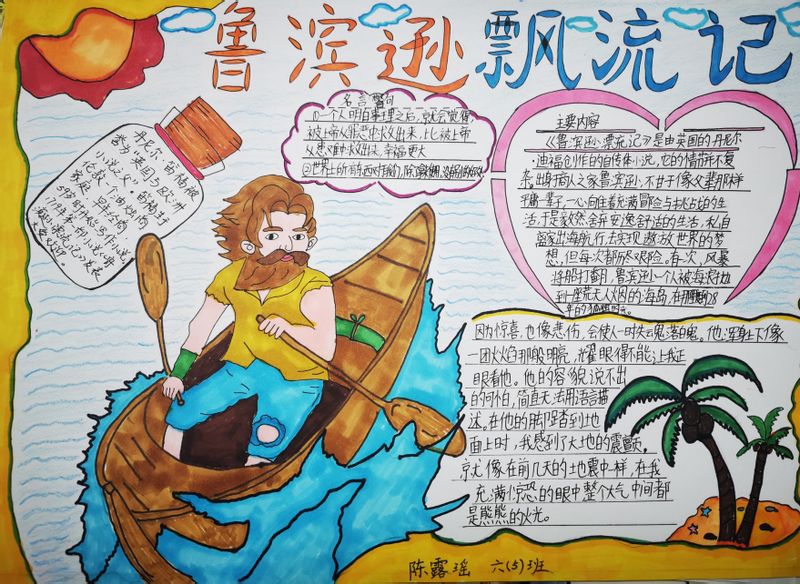 鲁滨逊飘流记
名言警句
①一个人明白事理之后,就会觉得,
被上帝从罪恶中救出来,比被上帝
从患难中救出来,幸福更大
②世界上的一切东西对于我们,
丹尼尔·笛福被
誉为"英国与欧洲
小说之父"笛福生于
伦敦,一油烛商
家庭
59岁时开始写作小说
1719年第一部小说《鲁
滨逊飘流记》发表
主要内容
《鲁滨逊·漂流记》是由英国的丹尼尔
·迪福创作的自传体小说,它的情节不复
杂,出身商人之家鲁滨逊,不甘于像父辈那样
平庸一辈子,一心向往着充满冒险与挑战的生
活,于是毅然舍弃安逸舒适的生活,私自
离家出海航行,去实现遨游世界的梦
想,但每次都历尽艰险。有一次,风暴
将船打翻,鲁滨逊一个人被海浪抛
到一座荒无人烟的海岛,在那度过28
年的孤独时光。
因为惊喜,也像悲伤,会使人一时失魂落魄。他浑身上下像
一团火焰那般明亮,耀眼得不能让我正
眼看他。他的容貌说不出
的可怕,简直无法用语言描
述。在他的脚踏到土地
面上时,我感到了大地的震颤,
就像在前几天的土地震中一样,在我
充满惊恐的眼中整个大气中间都
是熊熊的火光。
陈露瑶 六(5)班